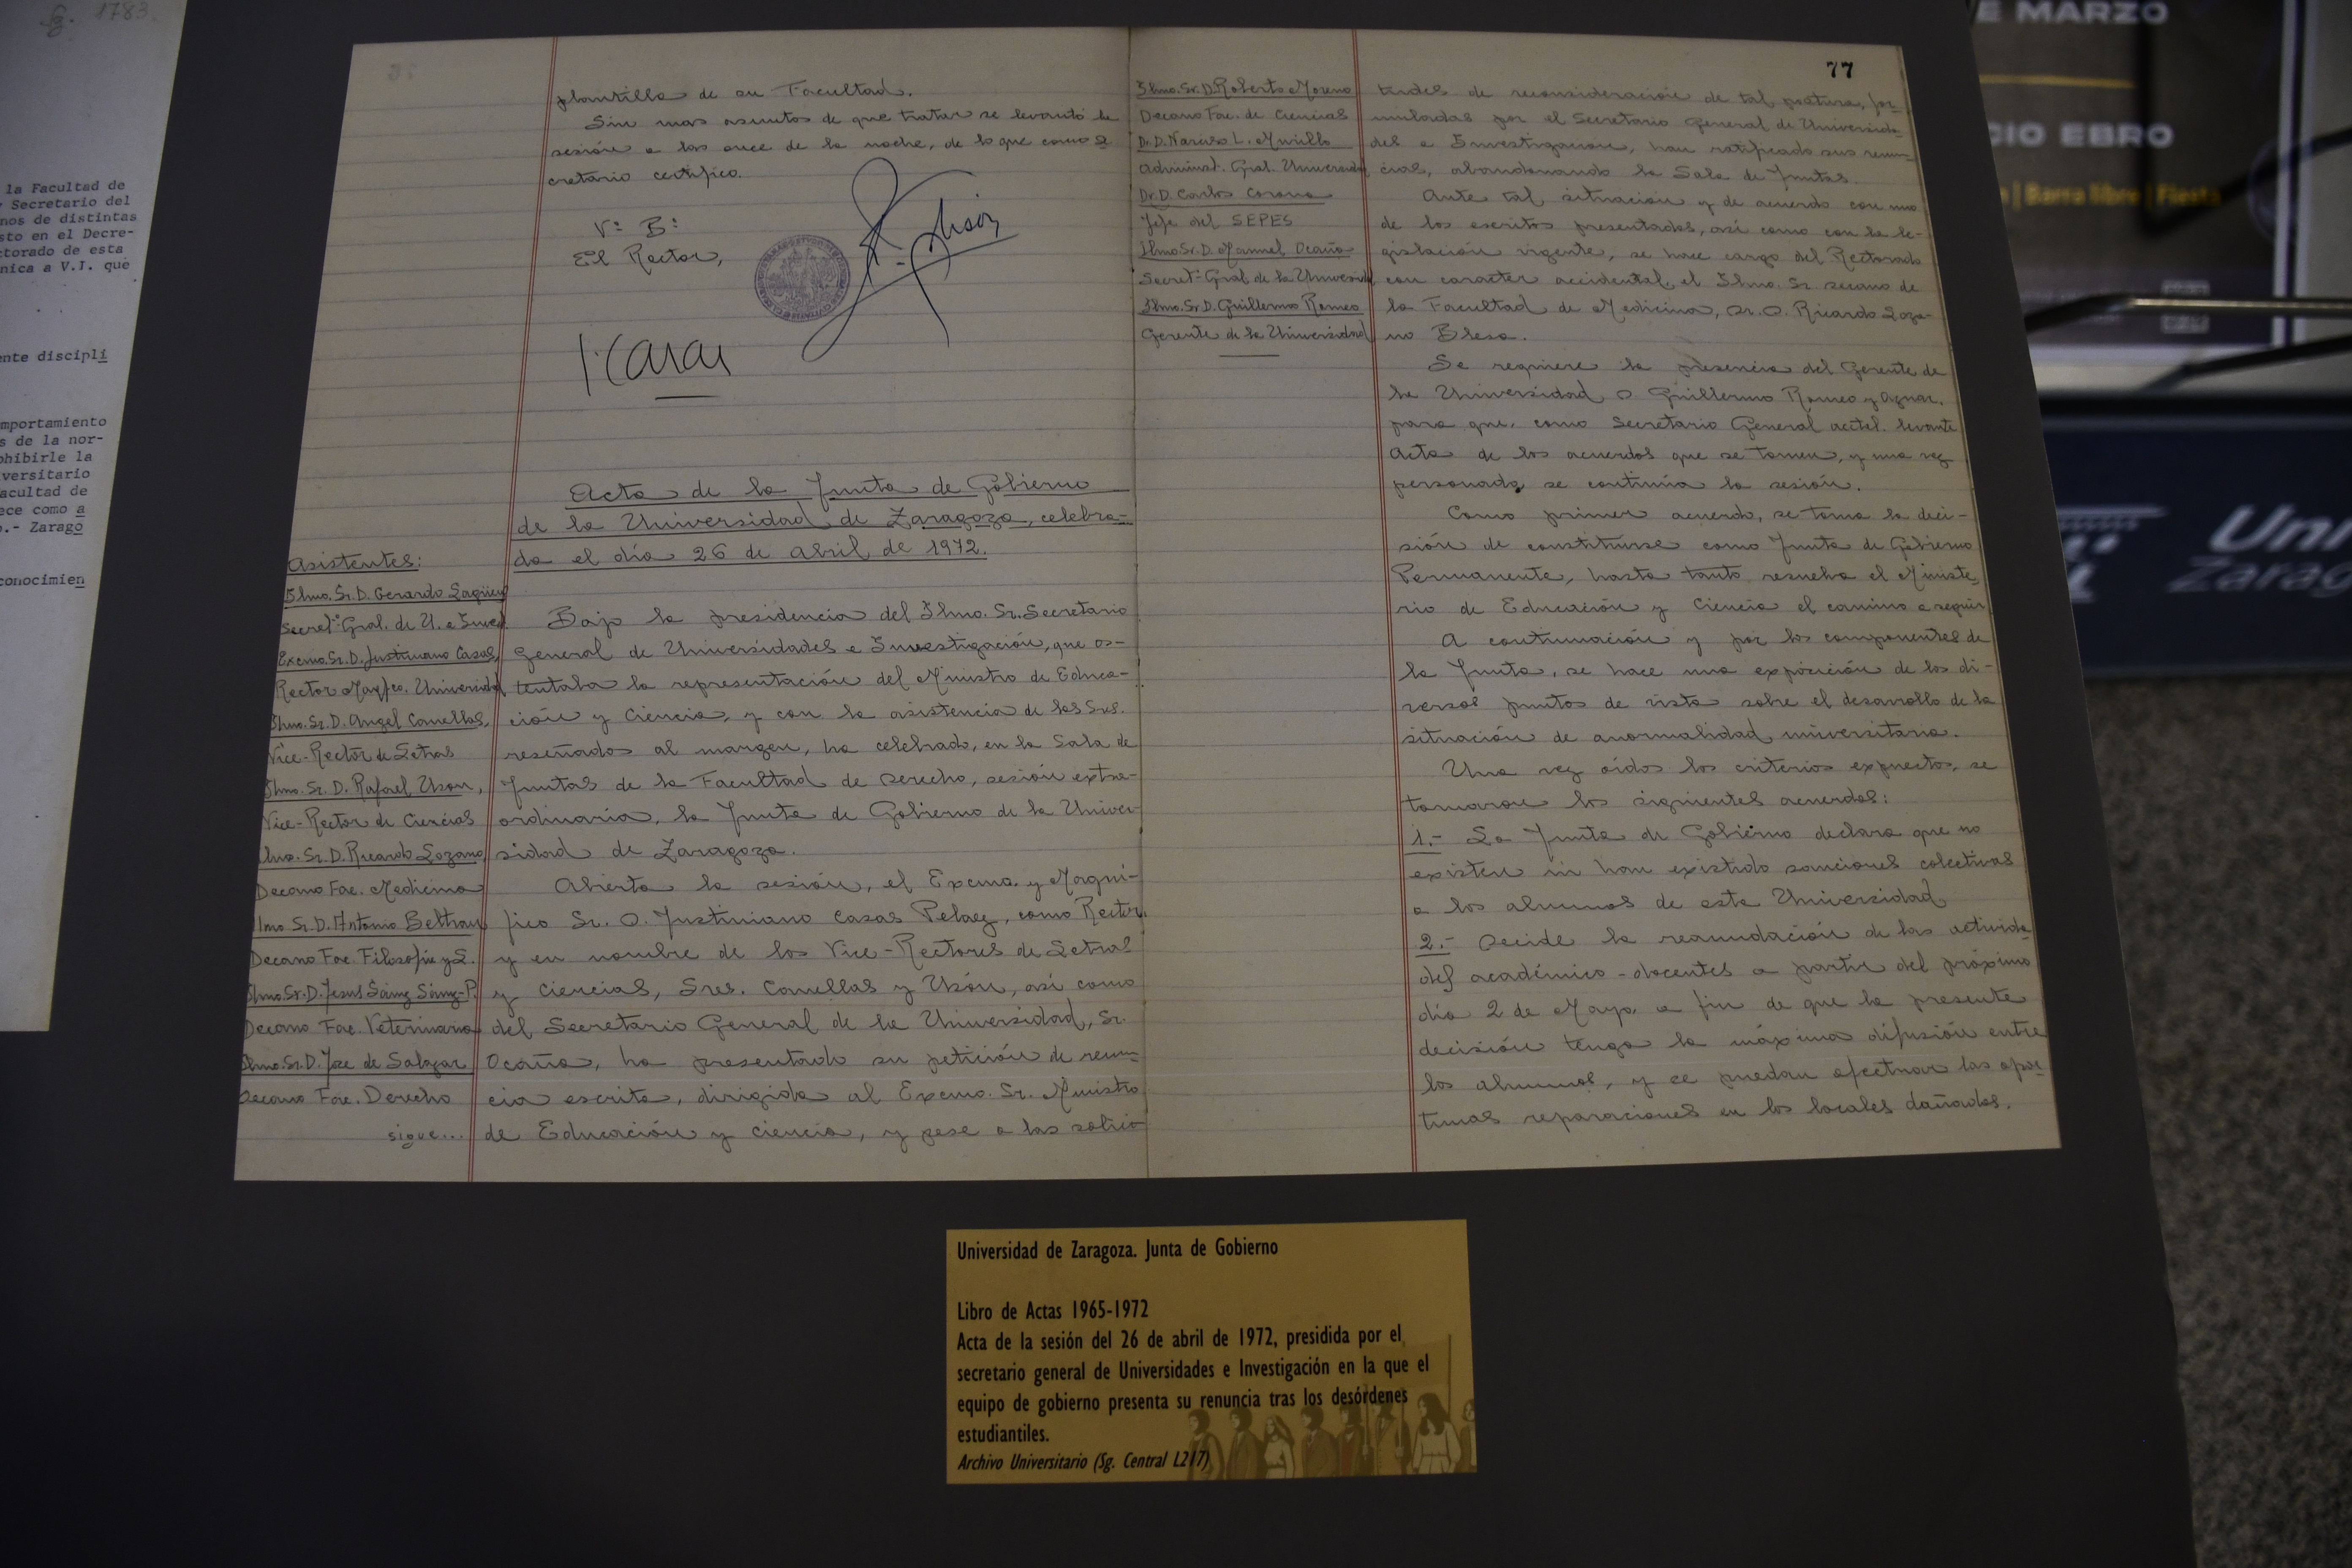 Sg. 1783.
la Facultad de
Secretario del
nos de distintas
sto en el Decre-
ctorado de esta
nica a V.I. que
ente discipli
mportamiento
s de la nor-
ohibirle la
versitario
acultad de
ece como a
o.- Zarago
conocimien
plantilla de su Facultad.
Sin mas asuntos de que tratar se levantó la
sesión a las once de la noche, de lo que como Se
cretario certifico.
Vº Bº
El Rector,
Acta de la Junta de Gobierno
de la Universidad de Zaragoza, celebra-
da el día 26 de abril de 1972.
Asistentes:
Ilmo. Sr. D. Gerardo
Secretº Gral. de U. e Inves.
Excmo. Sr. D. Justiniano Casas,
Rector Magfco. Universidad
Ilmo. Sr. D. Angel Canellas,
Vice-Rector de Letras
Ilmo. Sr. D. Rafael Uson,
Vice-Rector de Ciencias
Ilmo. Sr. D. Ricardo Lozano,
Decano Fac. Medicina
Ilmo Sr. D. Antonio Beltran
Decano Fac. Filosofia y L.
Ilmo. Sr. D. Jesus Sainz Sainz-P.
Decano Fac. Veterinaria
Ilmo. Sr. D. Jose de Salazar
Decano Fac. Derecho
sigue...
Bajo la presidencia del Ilmo. Sr. Secretario
General de Universidades e Investigación, que os-
tentaba la representación del Ministro de Educa-
ción y Ciencia, y con la asistencia de los Srs.
reseñados al margen, ha celebrado, en la Sala de
Juntas de la Facultad de Derecho, sesión extra-
ordinaria, la Junta de Gobierno de la Univer-
sidad de Zaragoza.
Abierta la sesión, el Excmo. y Magní-
fico Sr. D. Justiniano Casas Pelaez, como Rector,
y en nombre de los Vice-Rectores de Letras
y Ciencias, Sres. Canellas y Usón, así como
del Secretario General de la Universidad, Sr.
Ocaña, ha presentado su petición de renun-
cia escrita, dirigida al Excmo. Sr. Ministro
de Educación y Ciencia, y pese a las solici
77
Ilmo. Sr. D. Roberto Moreno
Decano Fac. de Ciencias
Dr. D. Narciso L. Murillo
Administ. Gral. Universidad
Dr. D. Carlos Corona
Jefe del SEPES
Ilmo Sr. D. Manuel Ocaña
Secretº Gral de la Universid
Ilmo. Sr. D. Guillermo Romeo
Gerente de la Universidad
tudes de reconsideración de tal postura, for-
muladas por el Secretario General de Universida-
des e Investigación, han ratificado sus renun-
cias, abandonando la Sala de Juntas.
Ante tal situación y de acuerdo con uno
de los escritos presentados, así como con la le-
gislación vigente, se hace cargo del Rectorado
con caracter accidental, el Ilmo. Sr. Decano de
la Facultad de Medicina, Dr. D. Ricardo Loza-
no Blesa.
Se requiere la presencia del Gerente de
la Universidad D. Guillermo Romeo y
para que, como Secretario General acctal. levante
Acta de los acuerdos que se tomen, y una vez
personado, se continúa la sesión.
Como primer acuerdo, se toma la deci-
sión de constituirse como Junta de Gobierno
Permanente, hasta tanto resuelva el Ministe-
rio de Educación y Ciencia el camino a seguir.
A continuación y por los componentes de
la Junta, se hace una exposición de los di-
versos puntos de vista sobre el desarrollo de la
situación de anormalidad universitaria.
Una vez oídos los criterios expuestos, se
tomaron los siguientes acuerdos:
1.- La Junta de Gobierno declara que no
existen ni han existido sanciones colectivas
a los alumnos de esta Universidad
2.- Decide la reanudación de las activida-
des académico-docentes a partir del próximo
día 2 de Mayo, a fin de que la presente
decisión tenga la máxima difusión entre
los alumnos, y se puedan efectuar las opor-
tunas reparaciones en los locales dañados.
Universidad de Zaragoza. Junta de Gobierno
Libro de Actas 1965-1972
Acta de la sesión del 26 de abril de 1972, presidida por el
secretario general de Universidades e Investigación en la que el
equipo de gobierno presenta su renuncia tras los desórdenes
estudiantiles.
Archivo Universitario (Sg. Central L217)
E MARZO
CIO EBRO
| Barra libre | Fiesta
Uni
Zarag